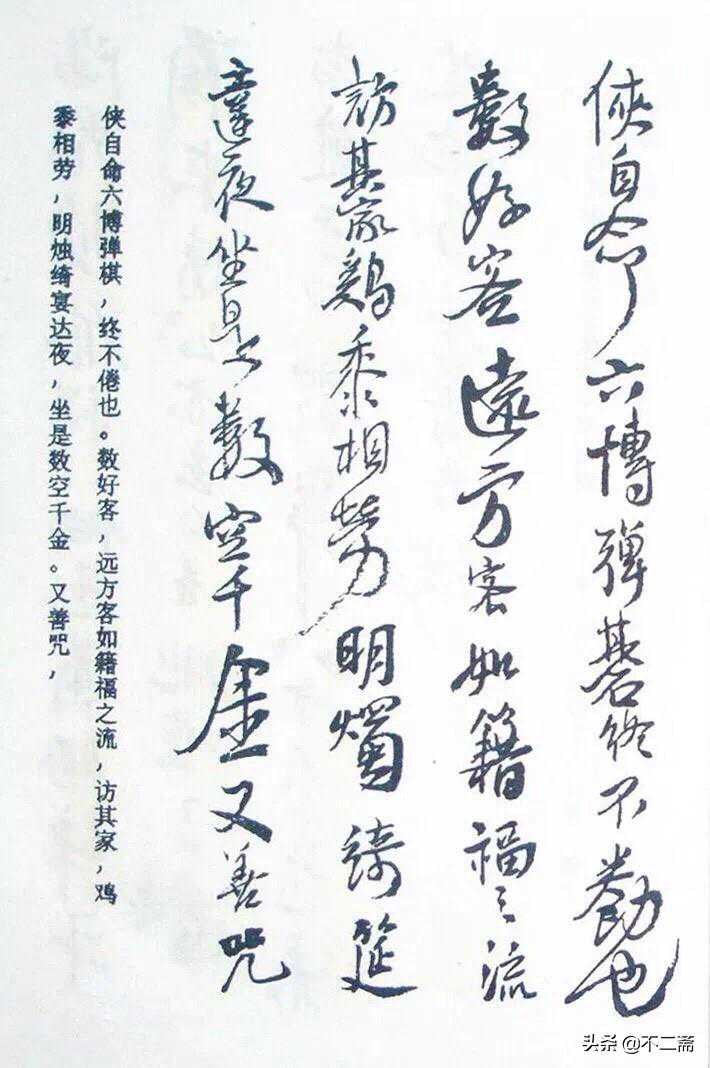 俠自命六博彈碁終不勌也
數好客遠方客如籍福之流
訪其家鷄黍相勞明燭綺筵
達夜坐是數空千金又善咒
侠自命六博弹棋，终不倦也。数好客，远方客如籍福之流，访其家，鸡
黍相劳，明烛绮宴达夜，坐是数空千金。又善咒，
头条 @不二斋